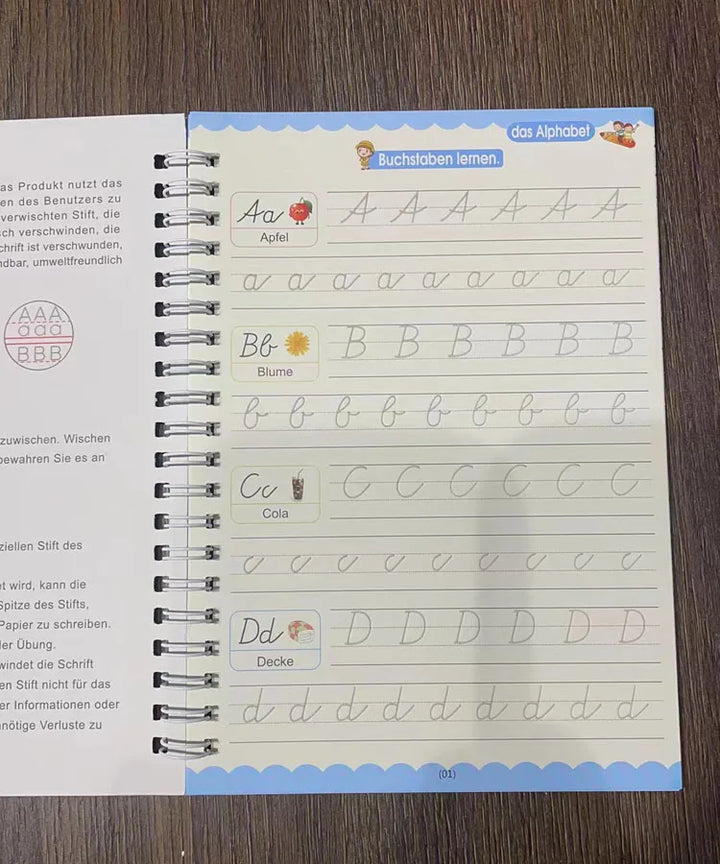 as Produkt nutzt das
en des Benutzers zu
verwischten Stift, die
ch verschwinden, die
chrift ist verschwunden,
ndbar, umweltfreundlich
AAA
aaa
BBB
zuwischen. Wischen
bewahren Sie es an
ziellen Stift des
et wird, kann die
Spitze des Stifts,
Papier zu schreiben.
der Übung.
windet die Schrift
en Stift nicht für das
er Informationen oder
nötige Verluste zu
das Alphabet
Buchstaben lernen.
Aa A A A A A A
Apfel
a a a a a a a a a
Bb B B B B B B
Blume
b b b b b b b b b
Cc C C C C C C
Cola
c c c c c c c c c
Dd D D D D D D
Decke
d d d d d d d d d
(01)